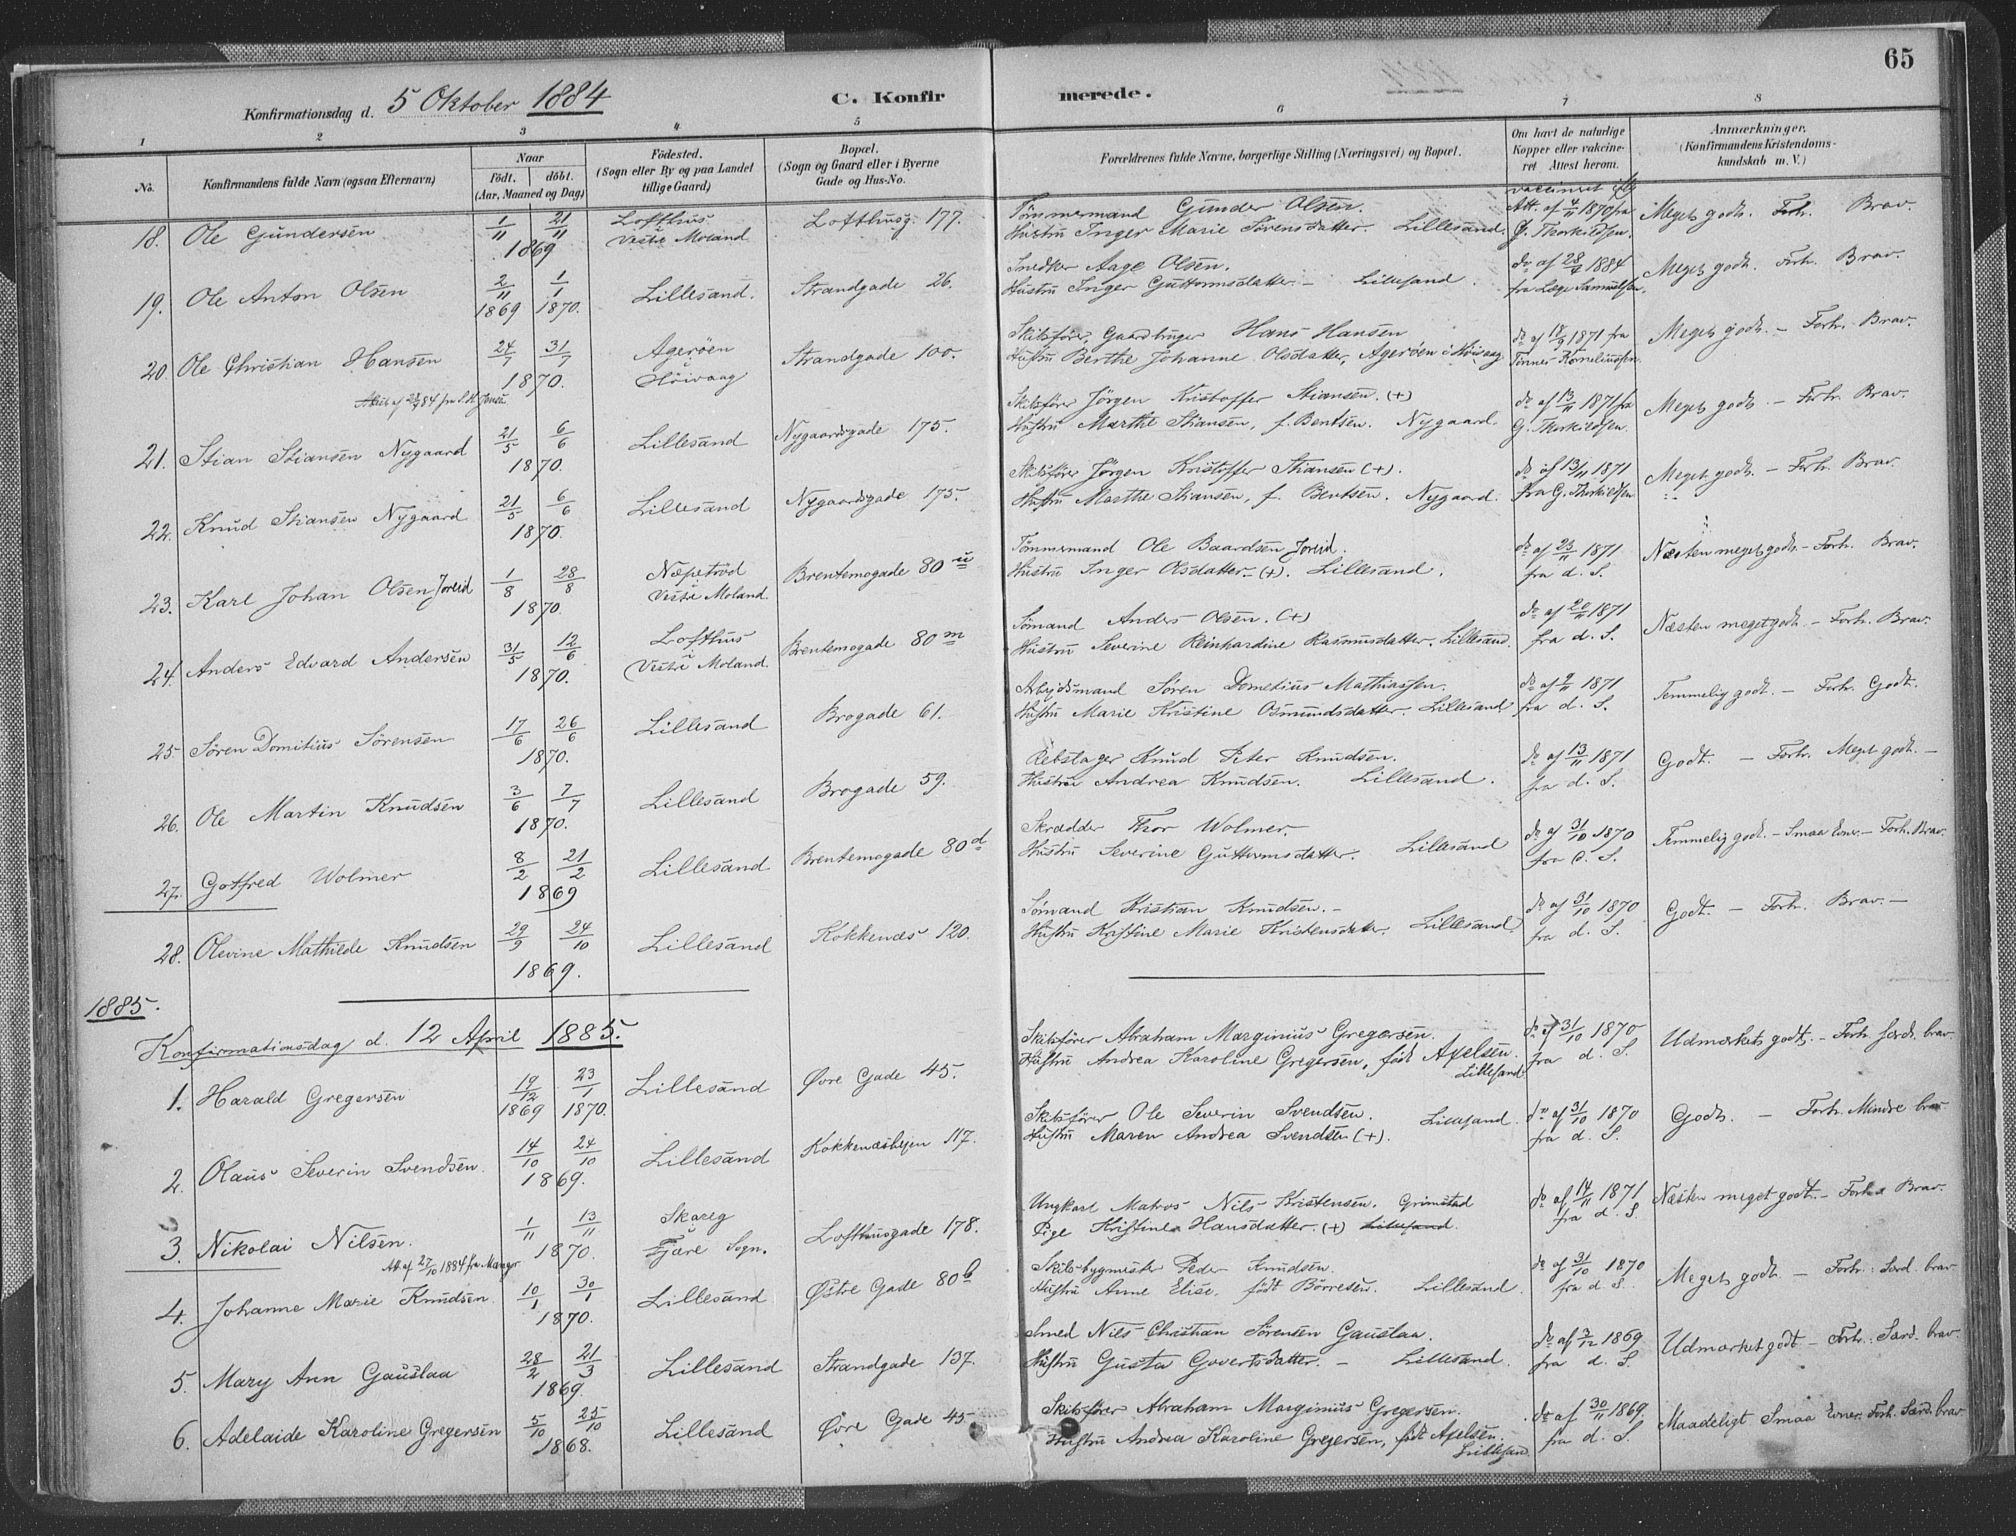 65
Konfirmationsdag d. 5 Oktober 1884
C. Konfirmerede.
1 2 3 4 5 6 7 8
No. Konfirmandens fulde Navn (ogsaa Efternavn) Naar Födt. döbt. (Aar, Maaned og Dag) Födested. (Sogn eller By og paa Landet tillige Gaard) Bopæl. (Sogn og Gaard eller i Byerne Gade og Hus-No. Forældrenes fulde Navne, borgerlige Stilling (Næringsvei) og Bopæl. Om havt de naturlige Kopper eller vaccineret Attest herom. Anmærkninger. (Konfirmandens Kristendomskundskab m. V.)
18. Ole Gundersen 1/11 21/11 1869 Lofthus i Vestre Moland Lofthusg. 177. Tømmermand Gunder Olsen. Hustru Inger Marie Sørensdatter. Lillesand. vaccineret iflg Att. af 4/11 1870 fra G. Thorkildsen. Meget godt. Forh. Brav.
19. Ole Anton Olsen 2/11 1869 1/1 1870. Lillesand. Strandgade 26. Snedker Aage Olsen. Hustru Inger Guttormsdatter. - Lillesand. do af 28/ 1884 fra Læge Samuelsen. Meget godt. Forh. Brav.
20. Ole Christian Hansen 24/7 31/7 1870. Agerøen i Høivaag Strandgade 100. Skibsfører, Gaardbruger Hans Hansen Hustru Berthe Johanne Olsdatter, Agerøen i Høivaag do af 18/9 1871 fra Tønnes Korneliussen. Meget godt. - Forh. Brav.
21. Stian Stiansen Nygaard 21/5 6/6 1870. Lillesand Nygaardsgade 175. Skibsfører Jörgen Kristoffer Stiansen. (+) Hustru Marthe Stiansen, f. Bentsen. Nygaard. do af 13/11 1871 fra G. Thorkildsen. Meget godt. - Forh. Brav.
22. Knud Stiansen Nygaard 21/5 6/6 1870. Lillesand Nygaardsgade 175. Skibsfører Jörgen Kristoffer Stiansen (+). Hustru Marthe Stiansen, f. Bentsen. Nygaard. do af 13/11 1871 fra G. Thorkildsen Meget godt. - Forh. Brav.
23. Karl Johan Olsen Joreid 1/8 28/8 1870. Næpetrød i Vestre Moland. Brentemogade 80 u Tömmermand Ole Baardsen Joreid. Hustru Inger Olsdatter. - (+). Lillesand. do af 23/11 1871 fra d. S. Næsten meget godt. - Forh. Brav.
24. Anders Edvard Andersen 31/5 12/6 1870. Lofthus i Vestre Moland Brentemogade 80 m Sømand Anders Olsen. (+) Hustru Severine Reinhardine Rasmusdatter. Lillesand. do af 20/11 1871 fra d. S. Næsten meget godt. - Forh. Brav.
25. Søren Domitius Sørensen 17/6 26/6 1870. Lillesand Brogade 61. Arbejdsmand Søren Dometius Mathiassen. Hustru Marie Kristine Osmundsdatter. Lillesand do af 9/11 1871 fra d. S. Temmelig godt. - Forh. Godt.
26. Ole Martin Knudsen 3/6 7/7 1870. Lillesand Brogade 59. Rebslager Knud Peter Knudsen. Hustru Andrea Knudsen. Lillesand. do af 13/11 1871 fra d. S. Godt. - Forh. Meget godt. -
27. Gotfred Wolmer 8/2 21/2 1869 Lillesand Brentemogade 80 d Skrædder Thor Wolmer. Hustru Severine Guttormsdatter. Lillesand do af 31/10 1870 fra d. S. Temmelig godt. - Smaa Evner. - Forh. Brav.
28. Olevine Mathilde Knudsen 29/9 24/10 1869. Lillesand Kokkenæs 120. Sømand Kristian Knudsen. - Hustru Kristine Marie Kristensdatter. Lillesand. do af 31/10 1870 fra d. S. Godt. - Forh. Brav. -
1885.
Konfirmationsdag d. 12 April 1885.
1. Harald Gregersen 19/12 1869 23/1 1870. Lillesand Øvre Gade 45. Skibsfører Abraham Marginius Gregersen. Hustru Andrea Karoline Gregersen, født Axelsen. Lillesand do af 31/10 1870 fra d. S. Udmærket godt. - Forh. særd. brav.
2. Olaus Severin Svendsen. 14/10 24/10 1869. Lillesand Kokkenæsheien 117. Skibsfører Ole Severin Svendsen. Hustru Maren Andrea Svendsen (+). Lillesand. do af 31/10 1870 fra d. S. Godt. - Forh. Mindre brav
3. Nikolai Nilsen. 1/11 13/11 1870. i Fjære Sogn. Lofthusgade 178. Ungkarl Matros Nils Kristensen. Grimstad Pige Kristine Hansdatter. (+) Lillesand. do af 14/11 1871 fra d. S. Næsten meget godt. - Forh. Brav.
4. Johanne Marie Knudsen. 10/1 30/1 1870. Lillesand Østre Gade 80 b Skibsbygmester Peder Knudsen. Hustru Anne Elise, født Börresen. Lillesand. do af 31/10 1870 fra d. S. Meget godt. - Forh. Særd. brav.
5. Mary Ann Gauslaa 28/2 21/3 1869. Lillesand Strandgade 137. Smed Nils Christian Sørensen Gauslaa. Hustru Gusta Govertsdatter. - Lillesand. do af 3/12 1869 fra d. S. Udmærket godt. - Forh. Særd. brav.
6. Adelaide Karoline Gregersen 5/10 25/10 1868. Lillesand Øvre Gade 45. Skibsfører Abraham Marginius Gregersen. Hustru Andrea Karoline Gregersen, født Axelsen. Lillesand. do af 30/11 1869 fra d. S. Maadeligt Smaa Evner. Forh. Særd. brav.